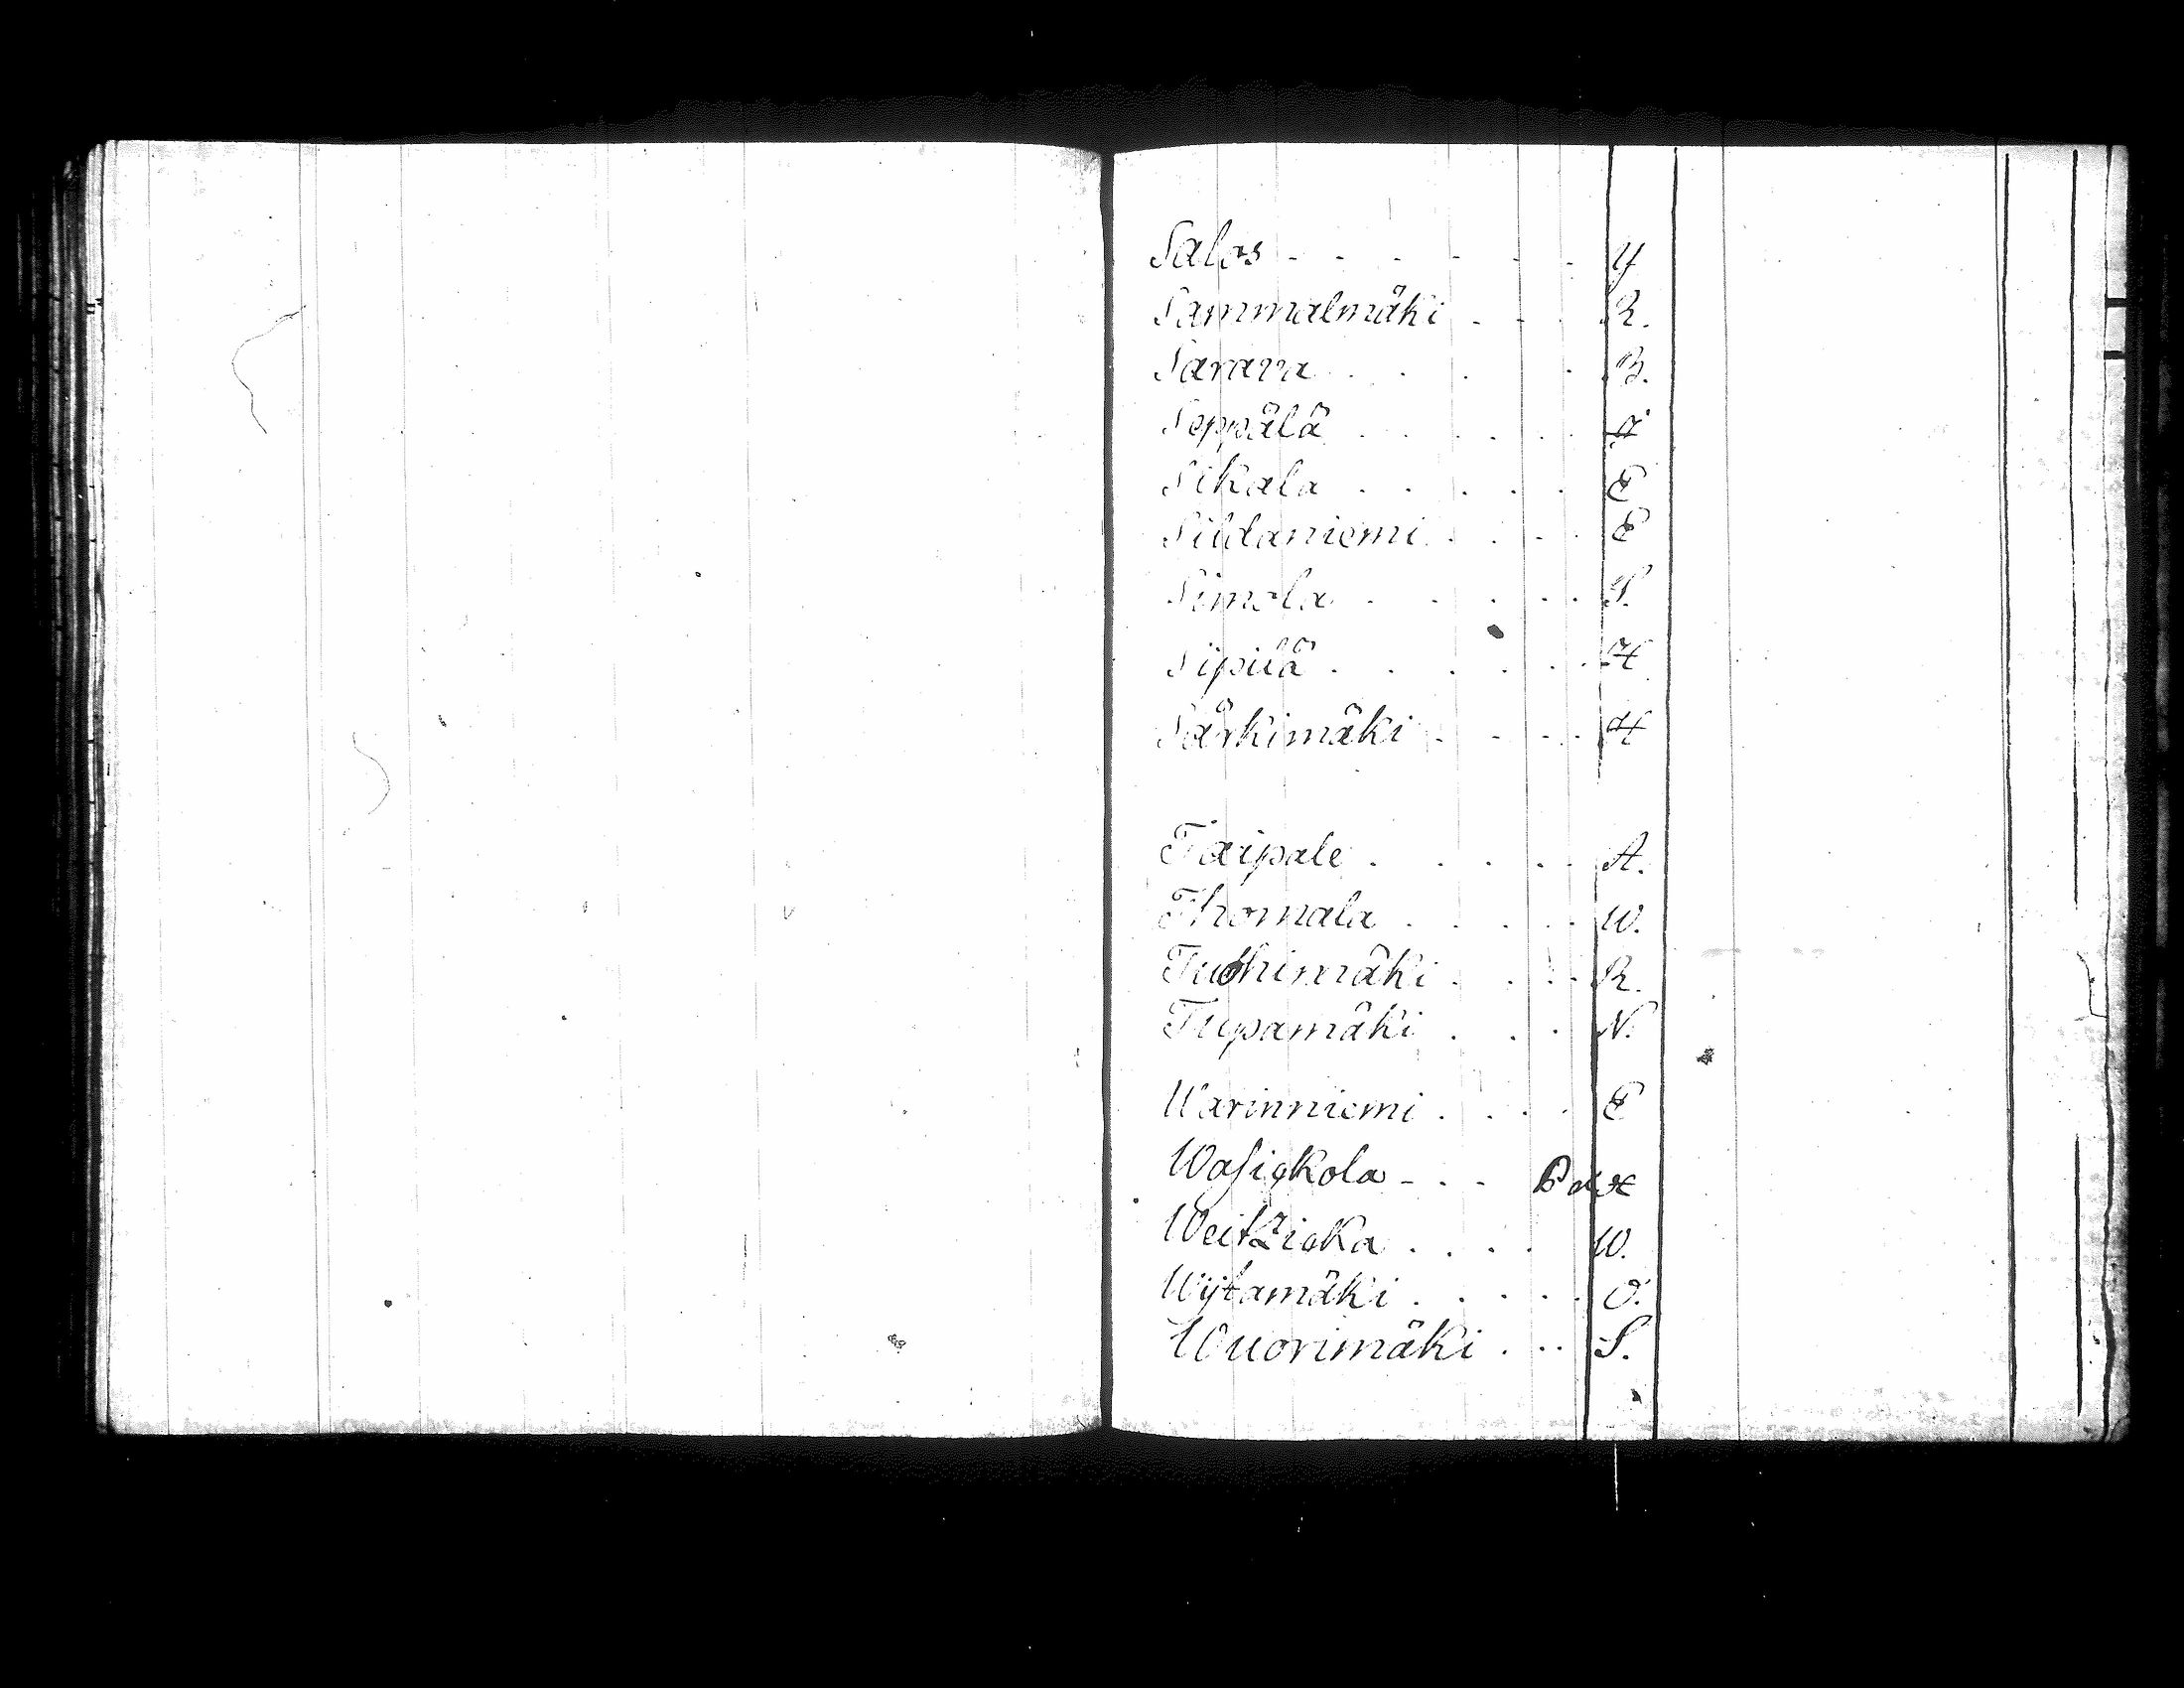 Salos - - - - - Y
Sammalmäki - . . R.
Sarava . . . . B.
Seppälä . . . . .
Sikala . . . . . E
Sildaniemi . . . . E
Simola . . . . . P.
Sipilä . . . . . H
Särkimäki . - - . H
Taipale . . . . . A.
Thomala . . . . . W.
Tuohimäki . . . . R.
Tupamäki . . . N.
Warinniemi . . . . E
Wasigkola - . - B d H
Weitzioka . . . . W.
Wijtamäki . . . . . O.
Wuorimäki . . . S.